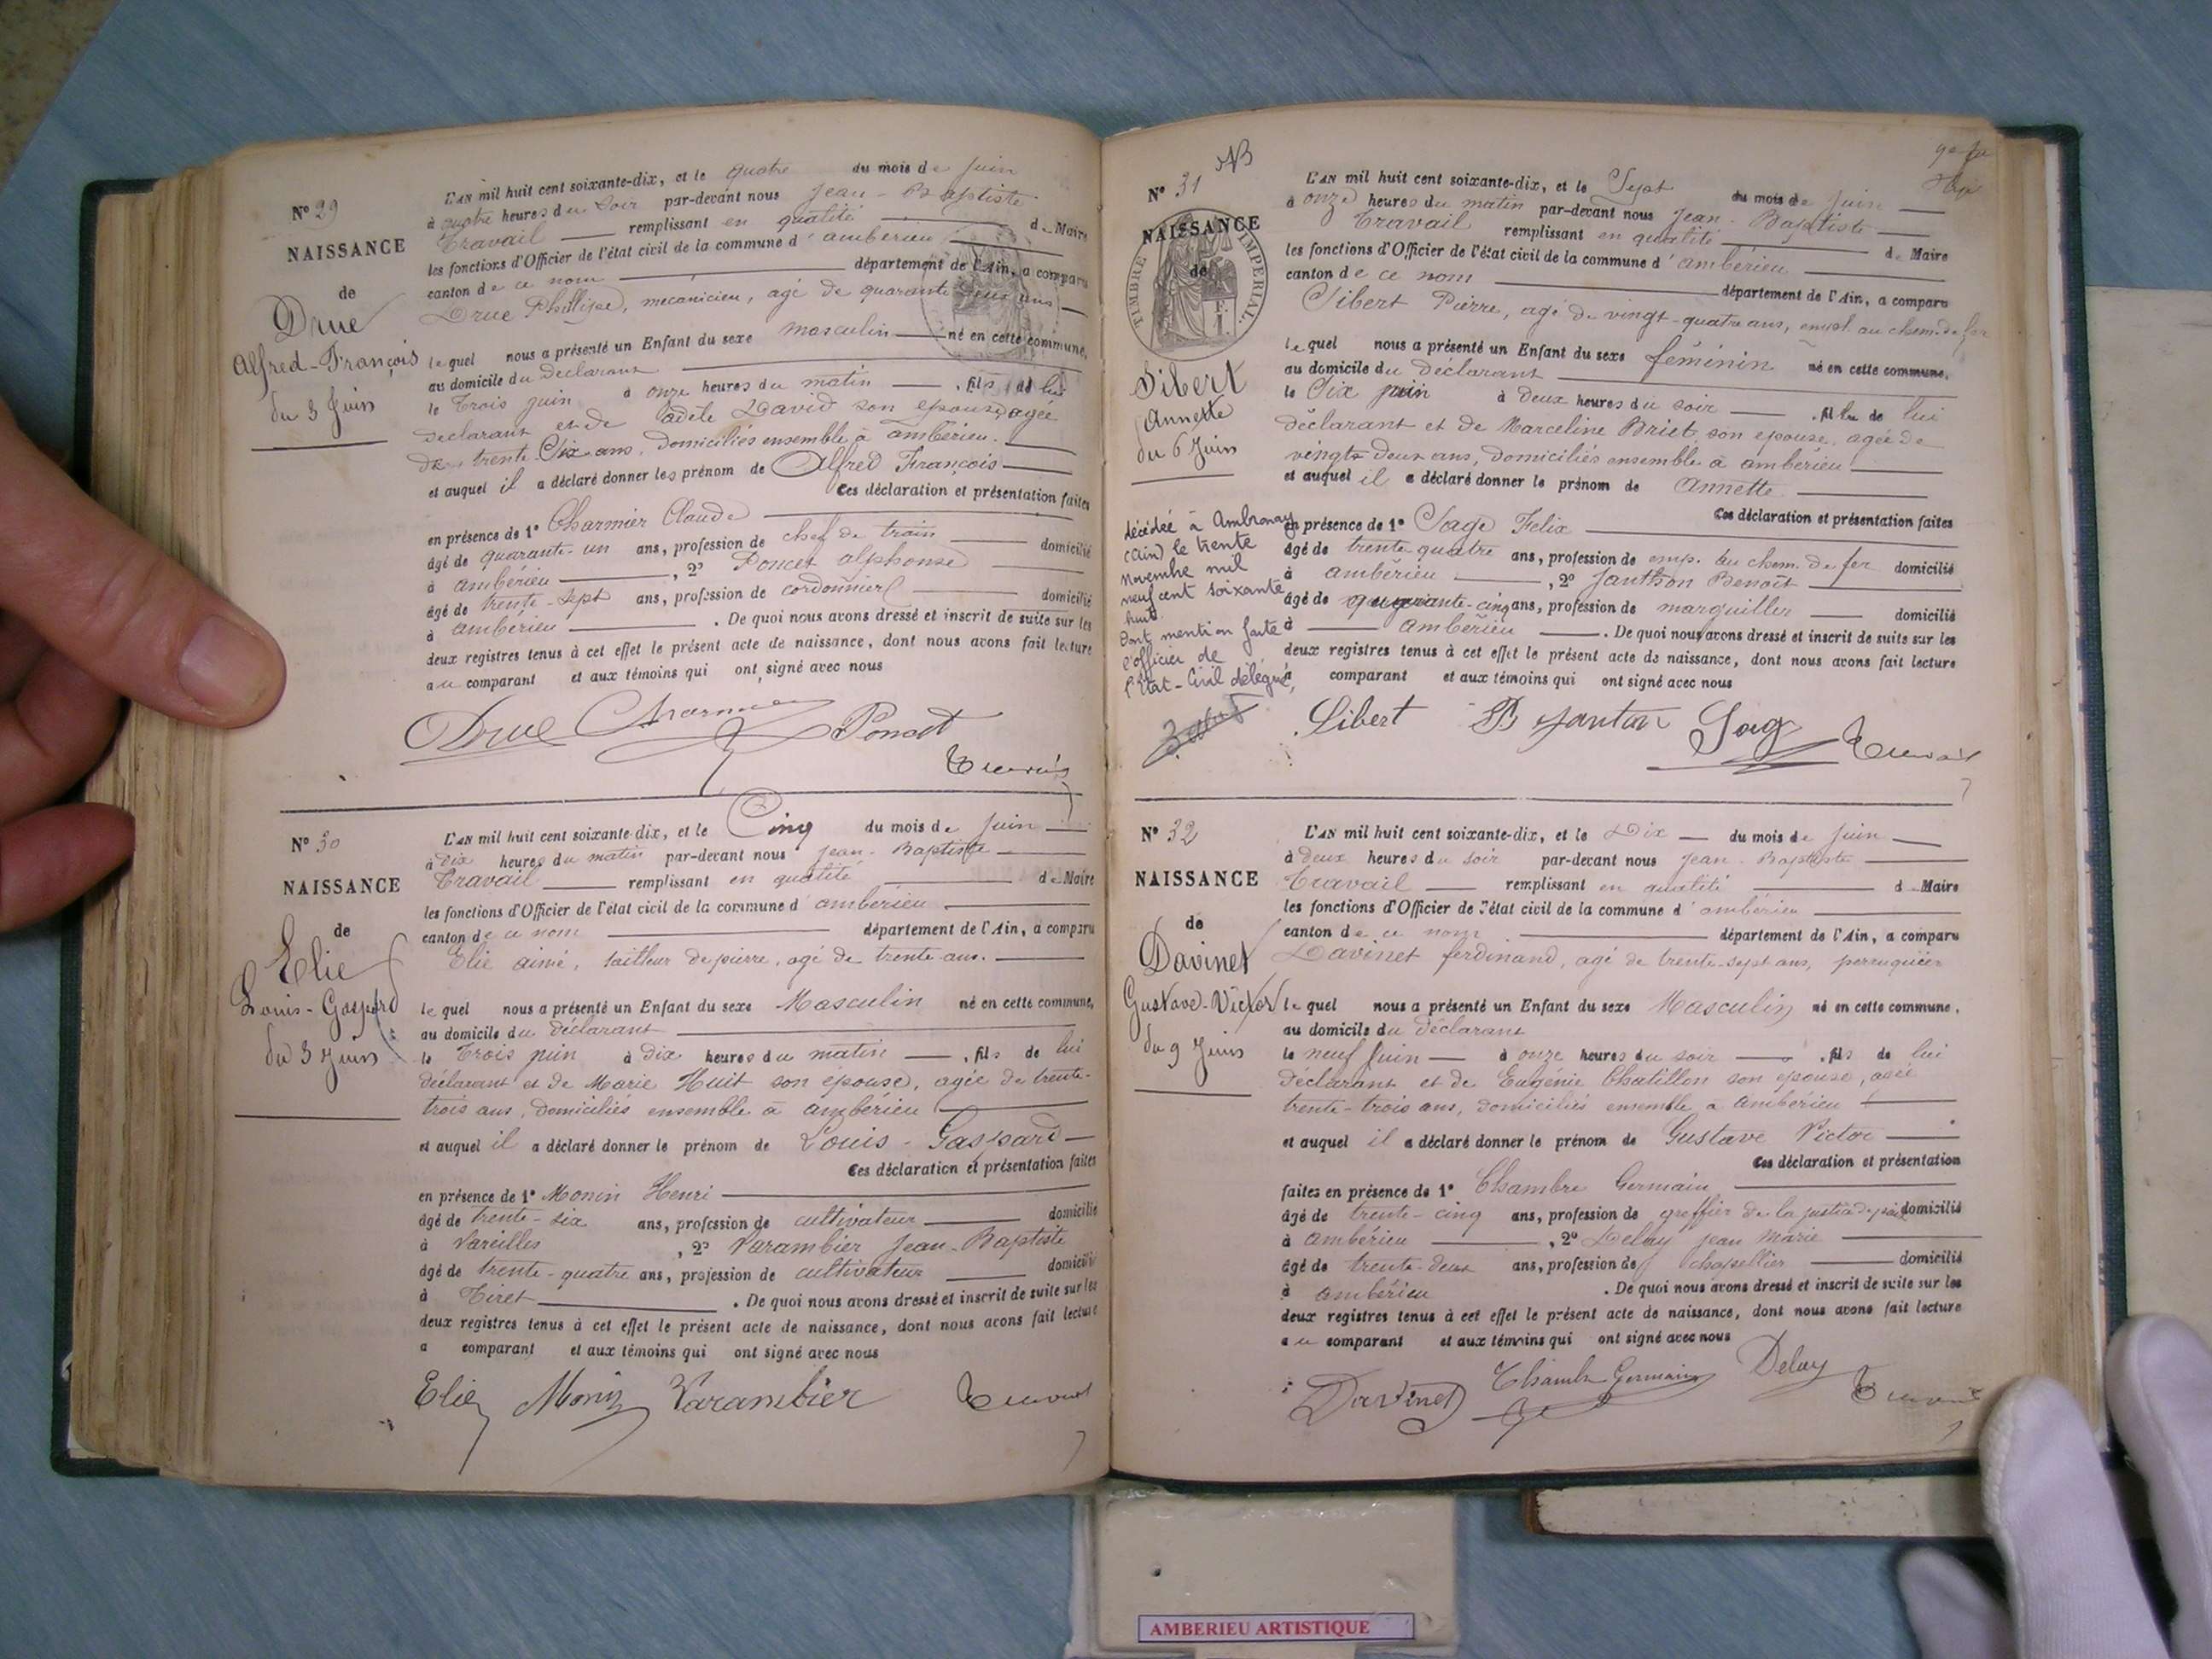 N° 29
NAISSANCE
de
Drue
Alfred-François
du 3 Juin
L'AN mil huit cent soixante-dix, et le quatre du mois de Juin
à quatre heures du Soir par-devant nous Jean-Baptiste
Travail remplissant en qualité de Maire
les fonctions d'Officier de l'état civil de la commune d'ambérieu
canton de ce nom département de l'Ain, a comparu
Drue Phillipe, mecanicien, agé de quarante deux ans
lequel nous a présenté un Enfant du sexe masculin né en cette commune,
au domicile du Déclarant
le Trois juin à onze heures du matin , fils de lui
déclarant et de adèle David son épouse, agée
de trente-Six ans, domiciliés ensemble à ambérieu.
et auquel il a déclaré donner les prénom de Alfred François
Ces déclaration et présentation faites
en présence de 1° Charmier Claude
âgé de quarante-un ans, profession de chef de train domicilié
à ambérieu , 2° Poncet alphonse
âgé de trente-sept ans, profession de cordonnier domicilié
à ambérieu . De quoi nous avons dressé et inscrit de suite sur les
deux registres tenus à cet effet le présent acte de naissance, dont nous avons fait lecture
au comparant et aux témoins qui ont signé avec nous
Drue Charmier Poncet
Travail
N° 30
NAISSANCE
de
Elie
Louis-Gaspard
du 3 Juin
L'AN mil huit cent soixante-dix, et le Cinq du mois de Juin
à dix heures du matin par-devant nous Jean-Baptiste
Travail remplissant en qualité de Maire
les fonctions d'Officier de l'état civil de la commune d'ambérieu
canton de ce nom département de l'Ain, a comparu
Elie aimé, tailleur de pierre, agé de trente ans.
lequel nous a présenté un Enfant du sexe Masculin né en cette commune,
au domicile du Déclarant
le Trois juin à dix heures du matin , fils de lui
déclarant et de Marie Huit son épouse, agée de trente-
trois ans, domiciliés ensemble à ambérieu
et auquel il a déclaré donner le prénom de Louis-Gaspard
Ces déclaration et présentation faites
en présence de 1° Monin Henri
âgé de trente-six ans, profession de cultivateur domicilié
à Vareilles , 2° Varambier Jean-Baptiste
âgé de trente-quatre ans, profession de cultivateur domicilié
à Tiret . De quoi nous avons dressé et inscrit de suite sur les
deux registres tenus à cet effet le présent acte de naissance, dont nous avons fait lecture
a comparant et aux témoins qui ont signé avec nous
Elie Monin Varambier Travail
N° 31
NAISSANCE
de
TIMBRE IMPERIAL
Sibert
Annette
du 6 Juin
L'AN mil huit cent soixante-dix, et le Sept du mois de Juin
à onze heures du matin par-devant nous Jean-Baptiste
Travail remplissant en qualité de Maire
les fonctions d'Officier de l'état civil de la commune d'ambérieu
canton de ce nom département de l'Ain, a comparu
Sibert Pierre, agé de vingt-quatre ans, empl. au chem. de fer
lequel nous a présenté un Enfant du sexe féminin né en cette commune,
au domicile du Déclarant
le Six juin à Deux heures du soir , fille de lui
déclarant et de Marceline Briet son épouse, agée de
vingt-deux ans, domiciliés ensemble à ambérieu
et auquel il a déclaré donner le prénom de Annette
Ces déclaration et présentation faites
en présence de 1° Sage Felix
âgé de trente quatre ans, profession de emp. au chem. de fer domicilié
à ambérieu , 2° Janthon Benoît
âgé de quarante-cinq ans, profession de marguiller domicilié
à ambérieu . De quoi nous avons dressé et inscrit de suite sur les
deux registres tenus à cet effet le présent acte de naissance, dont nous avons fait lecture
à comparant et aux témoins qui ont signé avec nous
décédée à Ambronay
(Ain) le trente
novembre mil
neuf cent soixante
huit.
Dont mention faite
l'officier de
l'Etat-Civil délégué,
Sibert B Janton Sage Travail
N° 32
NAISSANCE
de
Davinet
Gustave-Victor
du 9 Juin
L'AN mil huit cent soixante-dix, et le Dix du mois de Juin
à deux heures du soir par-devant nous Jean-Baptiste
Travail remplissant en qualité de Maire
les fonctions d'Officier de l'état civil de la commune d'ambérieu
canton de ce nom département de l'Ain, a comparu
Davinet ferdinand, agé de trente-sept ans, perruquier
lequel nous a présenté un Enfant du sexe Masculin né en cette commune,
au domicile du déclarant
le neuf Juin à onze heures du soir , fils de lui
déclarant et de Eugénie Chatillon son épouse, agée
trente-trois ans, domiciliés ensemble à ambérieu
et auquel il a déclaré donner le prénom de Gustave Victor
Ces déclaration et présentation
faites en présence de 1° Chambre Germain
âgé de trente-cinq ans, profession de greffier de la justice de paix domicilié
à ambérieu , 2° Delay jean Marie
âgé de trente-deux ans, profession de chapellier domicilié
à ambérieu . De quoi nous avons dressé et inscrit de suite sur les
deux registres tenus à cet effet le présent acte de naissance, dont nous avons fait lecture
au comparant et aux témoins qui ont signé avec nous
Davinet Chambre Germain Delay Travail
AMBERIEU ARTISTIQUE